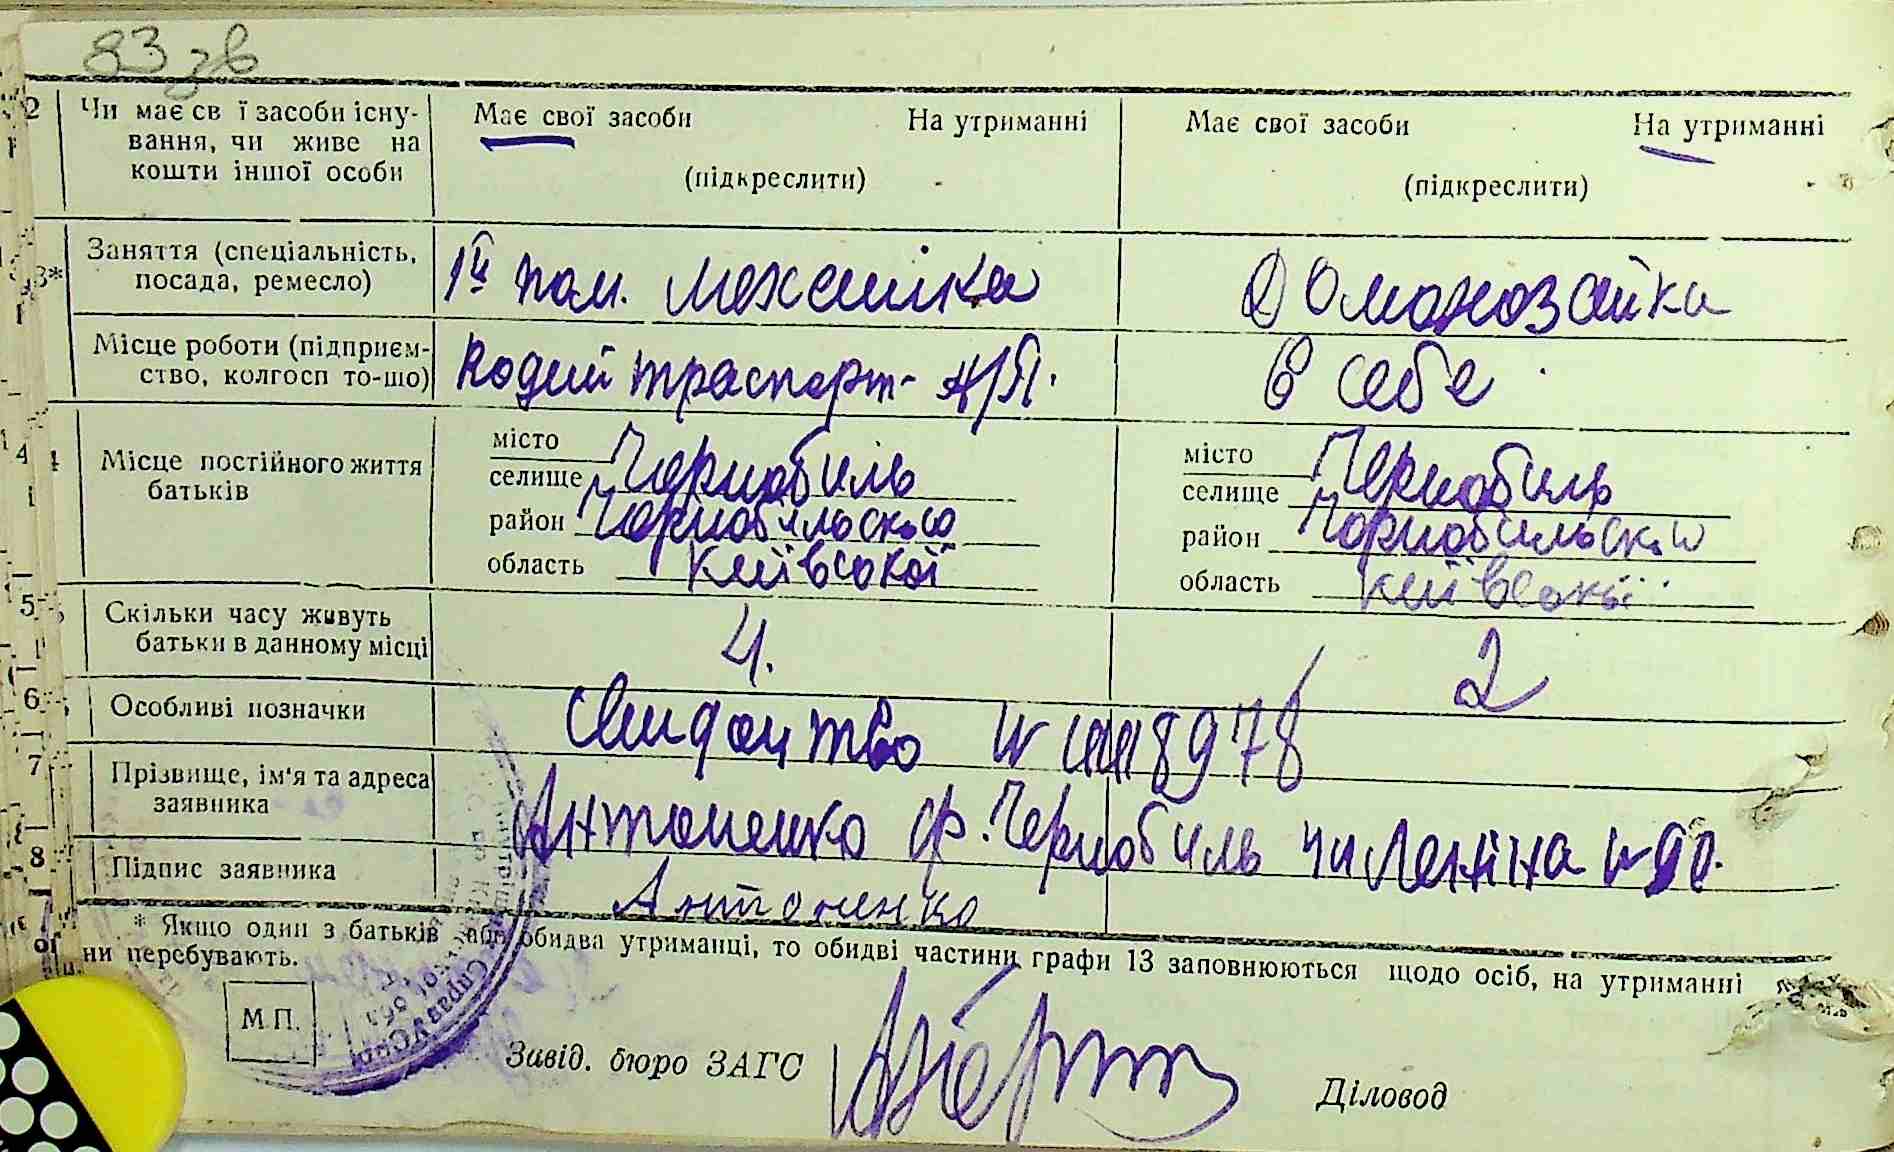 83 зв
2 Чи має св ї засоби існу- Має свої засоби На утриманні Має свої засоби На утриманні
вання, чи живе на
кошти іншої особи (підкреслити) (підкреслити)
3* Заняття (спеціальність,
посада, ремесло) 1й пом. механіка Домохозайка
Місце роботи (підприєм-
ство, колгосп то-що) Водий траспорт- в себе
4 Місце постійного життя
батьків
місто
селище Чорнобиль
район Чорнобильского
область Київської
місто
селище Чернобиль
район Чорнобильский
область Київської
5 Скільки часу живуть
батьки в данному місці 4. 2
6 Особливі позначки Свидоцтво 8978
7 Прізвище, ім'я та адреса
заявника Антоненко Чернобиль Леніна 90.
8 Підпис заявника Антоненко
* Якщо один з батьків або обидва утриманці, то обидві частини графи 13 заповнюються щодо осіб, на утриманні
ни перебувають.
М.П.
Завід. бюро ЗАГС Діловод